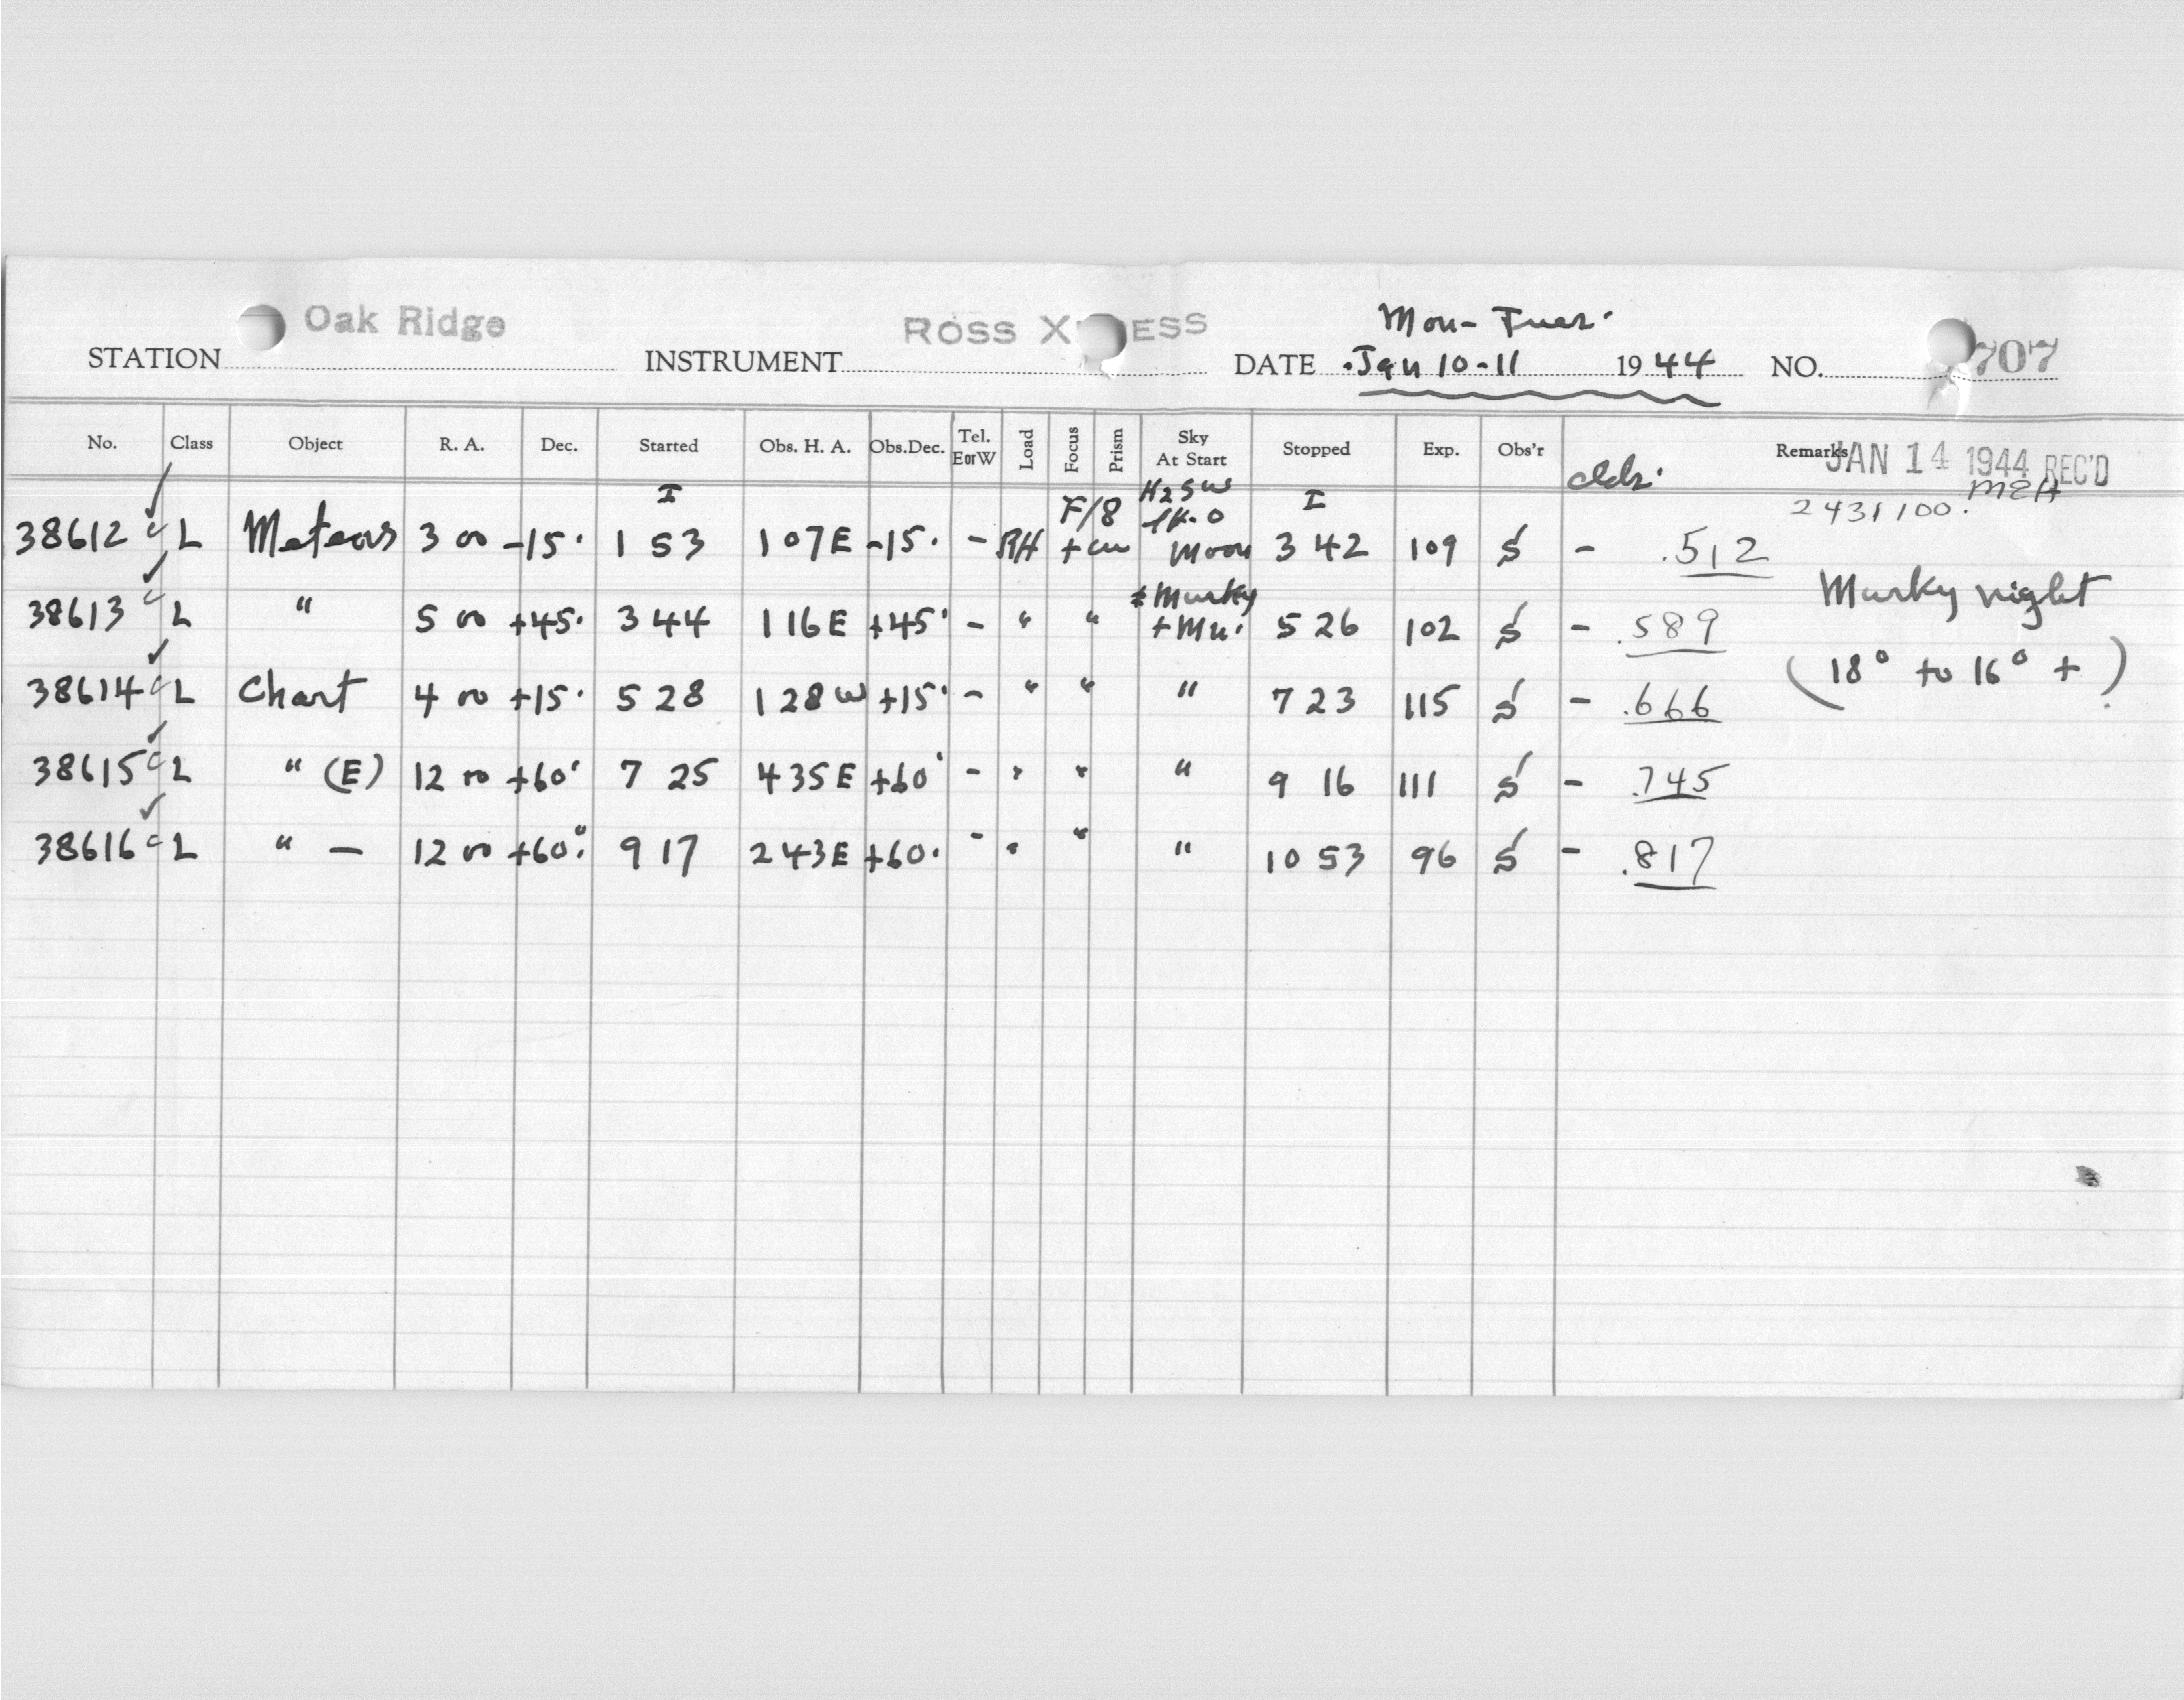 Oak Ridge ROSS X ESS Mon- Tues.
STATION INSTRUMENT DATE Jan 10-11 1944 NO. 707
No. Class Object R. A. Dec. Started Obs. H. A. Obs.Dec. Tel. EorW Load Focus Prism Sky At Start Stopped Exp. Obs'r Remarks JAN 14 1944 REC'D
I F/8 I 2431100. MEH
38612 c L Meteors 3 00 -15. 1 53 107E -15. - RH Moon 3 42 109 S - .512
38613 c L " 5 00 +45. 3 44 116E +45' - " " Murky 5 26 102 S - .589 Murky night
38614 c L Chart 4 00 +15. 5 28 128W +15' - " " " 7 23 115 S - .666 (18° to 16° +)
38615 c L " (E) 12 00 +60' 7 25 435E +60' - " " " 9 16 111 S - .745
38616 c L " — 12 00 +60. 9 17 243E +60. - " " " 10 53 96 S - .817